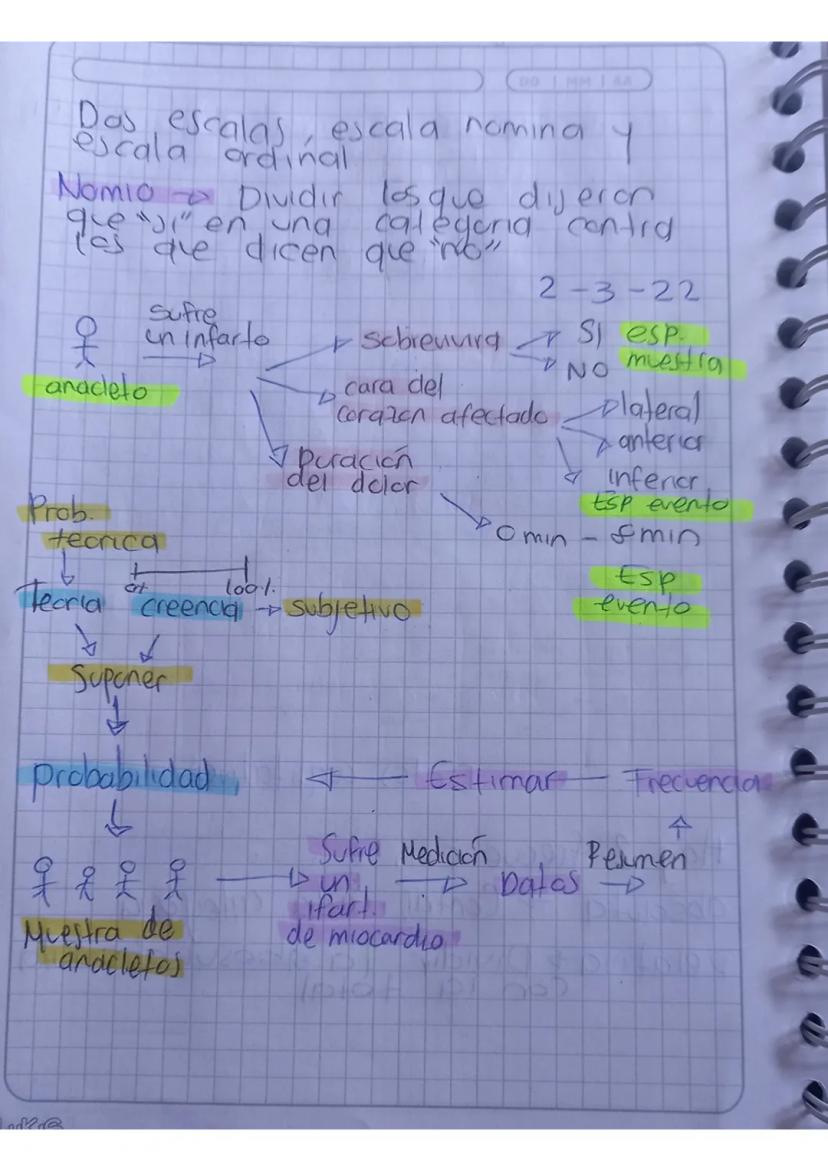 DD | MM | AA
Dos escalas, escala nomina y
escala ordinal
Nomio → Dividir los que dijeron
que "si" en una categoria contra
los que dicen que "no"
2-3-22
Sufre
un infarto
anacleto
Sobrevivira
SI esp.
NO muestra
cara del
corazon afectado
lateral
anterior
inferior
Esp evento
Duración
del dolor
0 min - 8 min
Esp
evento
Prob.
teorica
0% 100%
Teoria creencia → subjetivo
Suponer
probabilidad ← Estimar — Frecuencia
Sufre Medición Resumen
un Datos
ifart.
de miocardio
Muestra de
anacletos